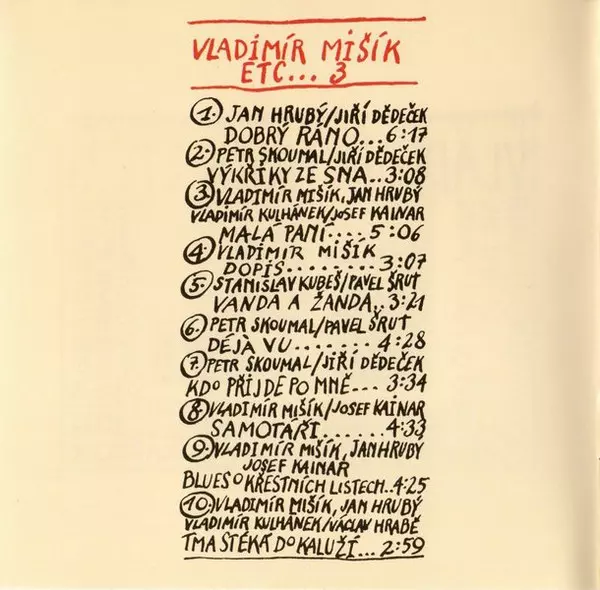 VLADIMÍR MIŠÍK
ETC... 3
1. JAN HRUBÝ/JIŘÍ DĚDEČEK
DOBRÝ RÁNO...6:17
2. PETR SKOUMAL/JIŘÍ DĚDEČEK
VÝKŘIKY ZE SNA..3:08
3. VLADIMÍR MIŠÍK, JAN HRUBÝ
VLADIMÍR KULHÁNEK/JOSEF KAINAR
MALÁ PANÍ....5:06
4. VLADIMIR MIŠÍK
DOPIS........3:07
5. STANISLAV KUBEŠ/PAVEL ŠRUT
VANDA A ŽANDA..3:21
6. PETR SKOUMAL/PAVEL ŠRUT
DÉJÀ VU.......4:28
7. PETR SKOUMAL/JIŘÍ DĚDEČEK
KDO PŘIJDE PO MNĚ...3:34
8. VLADIMÍR MIŠÍK/JOSEF KAINAR
SAMOTÁŘI......4:33
9. VLADIMÍR MIŠÍK, JAN HRUBY
JOSEF KAINAR
BLUES O KŘESTNÍCH LISTECH..4:25
10. VLADIMÍR MIŠÍK, JAN HRUBÝ
VLADIMÍR KULHÁNEK/VÁCLAV HRABĚ
TMA ŠTĚKÁ DO KALUŽÍ...2:59